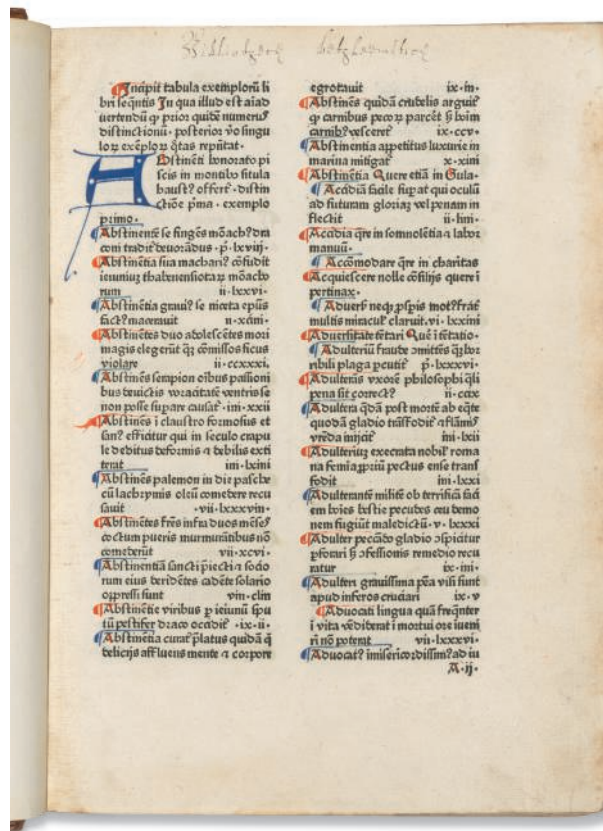 Incipit tabula exemploꝝ li
bri seqn̄tis In qua illud est aīad
vertendū ꝙ prior quidē numerꝰ
distinctionū . posterior vo singu
loꝝ exēploꝝ q̄tas rep̄ntat .
Abstinēti honorato pi
scis in montibꝰ situla
haustꝰ offert̄ . distin
ctiōe p̄ma . exemplo
primo .
Abstinentē se fingēs mōachꝰ dra
coni tradit̄ deuorādus . p̄ . lxviij .
Abstinētia sua machariꝰ cōfudit
ieiuniuꝫ thabenensiotaꝝ mōacho
rum ii . lxxvi .
Abstinētia grauiꝰ se niceta ep̄us
facꝰ macerauit ii . xciiii .
Abstinētes duo adolescētes mori
magis elegerūt qꝫ cōmissos ficus
violare ii . ccxxxi .
Abstinēs serapion oībus passioni
bus deuictis voracitatē ventris se
non posse supare causat̄ . iiii . xxii
Abstinēs ī claustro formosus et
sanꝰ efficitur qui in seculo crapu
le deditus deformis ⁊ debilis exti
terat iiii . lxiiii
Abstinēs palemon in die pasche
cū lachrymis oleū comedere recu
sauit . vii . lxxxviii .
Abstinētes fr̄es infra duos mēseꝭ
coctum pueris murmurātibus nō
comederūt vii . xcvi .
Abstinentiā sancti p̄iecti ⁊ socio
rum eius deridētes cadēte solario
opp̄ressi sunt viii . cliii
Abstinētie viribus ꝑ ieiunū spu
tū pestifer draco occidit̄ . ix . ii .
Abstinētia curat̄ p̄latus quidā ꝙ
delicijs affluens mente ⁊ corpore
egrotauit ix . iii .
Abstinēs quidā crudelis arguit̄
ꝙ carnibus pecoꝝ parcēt ꝫ hoīm
carnibꝰ vesceret̄ ix . ccv .
Abstinentia appetitus luxurie in
marina mitigat̄ x . xiiii
Abstinētia Quere etiā in Gula .
Accidia facile supat qui oculū
ad futuram gloriaꝫ vel penam in
flectit ii . liiii .
Accidia q̄re in somnolētia ⁊ labor
manuū .
Accomodare q̄re in charitas
Acquiescere nolle cōsilijs quere ī
pertinax .
Aduersꝭ neqꝫ pspis motꝰ frat̄
multis miraculꝭ claruit . vi . lxxiiii
Aduersitate tētari Quē ī tētatio .
Adulteriū fraude omittēs qꝫ hor
ribili plaga pcutit̄ p̄ . lxxxvi .
Adulterās vxorē philosophi qli
pena sit correctꝰ ii . ccix
Adultera qdā post mortē ab eqte
quodā gladio trāsfodit̄ ⁊ flāmis
vrēda inijcit̄ iiii . lxii
Adulteriuꝫ execrata nobilꝭ roma
na femīa ꝓpriū pectus ense trans
fodit iiii . lxxi
Adulterantē militē ob terrificā faci
em hoīes bestie pecudes ceu demo
nem fugiūt maledictū . v . lxxxi
Adulter peccādo gladio ꝯspicitur
pforari ꝫ ꝯfessionis remedio recu
ratur ix . iiii .
Adulteri grauissima pēa visi sunt
apud inferos cruciari ix . v
Aduocati lingua quā freqn̄ter
ī vita vēdiderat ī mortui ore iueni
ri nō poterat vii . lxxxvi .
Aduocatꝰ imisericordissimꝰ ad iu
A . ij .